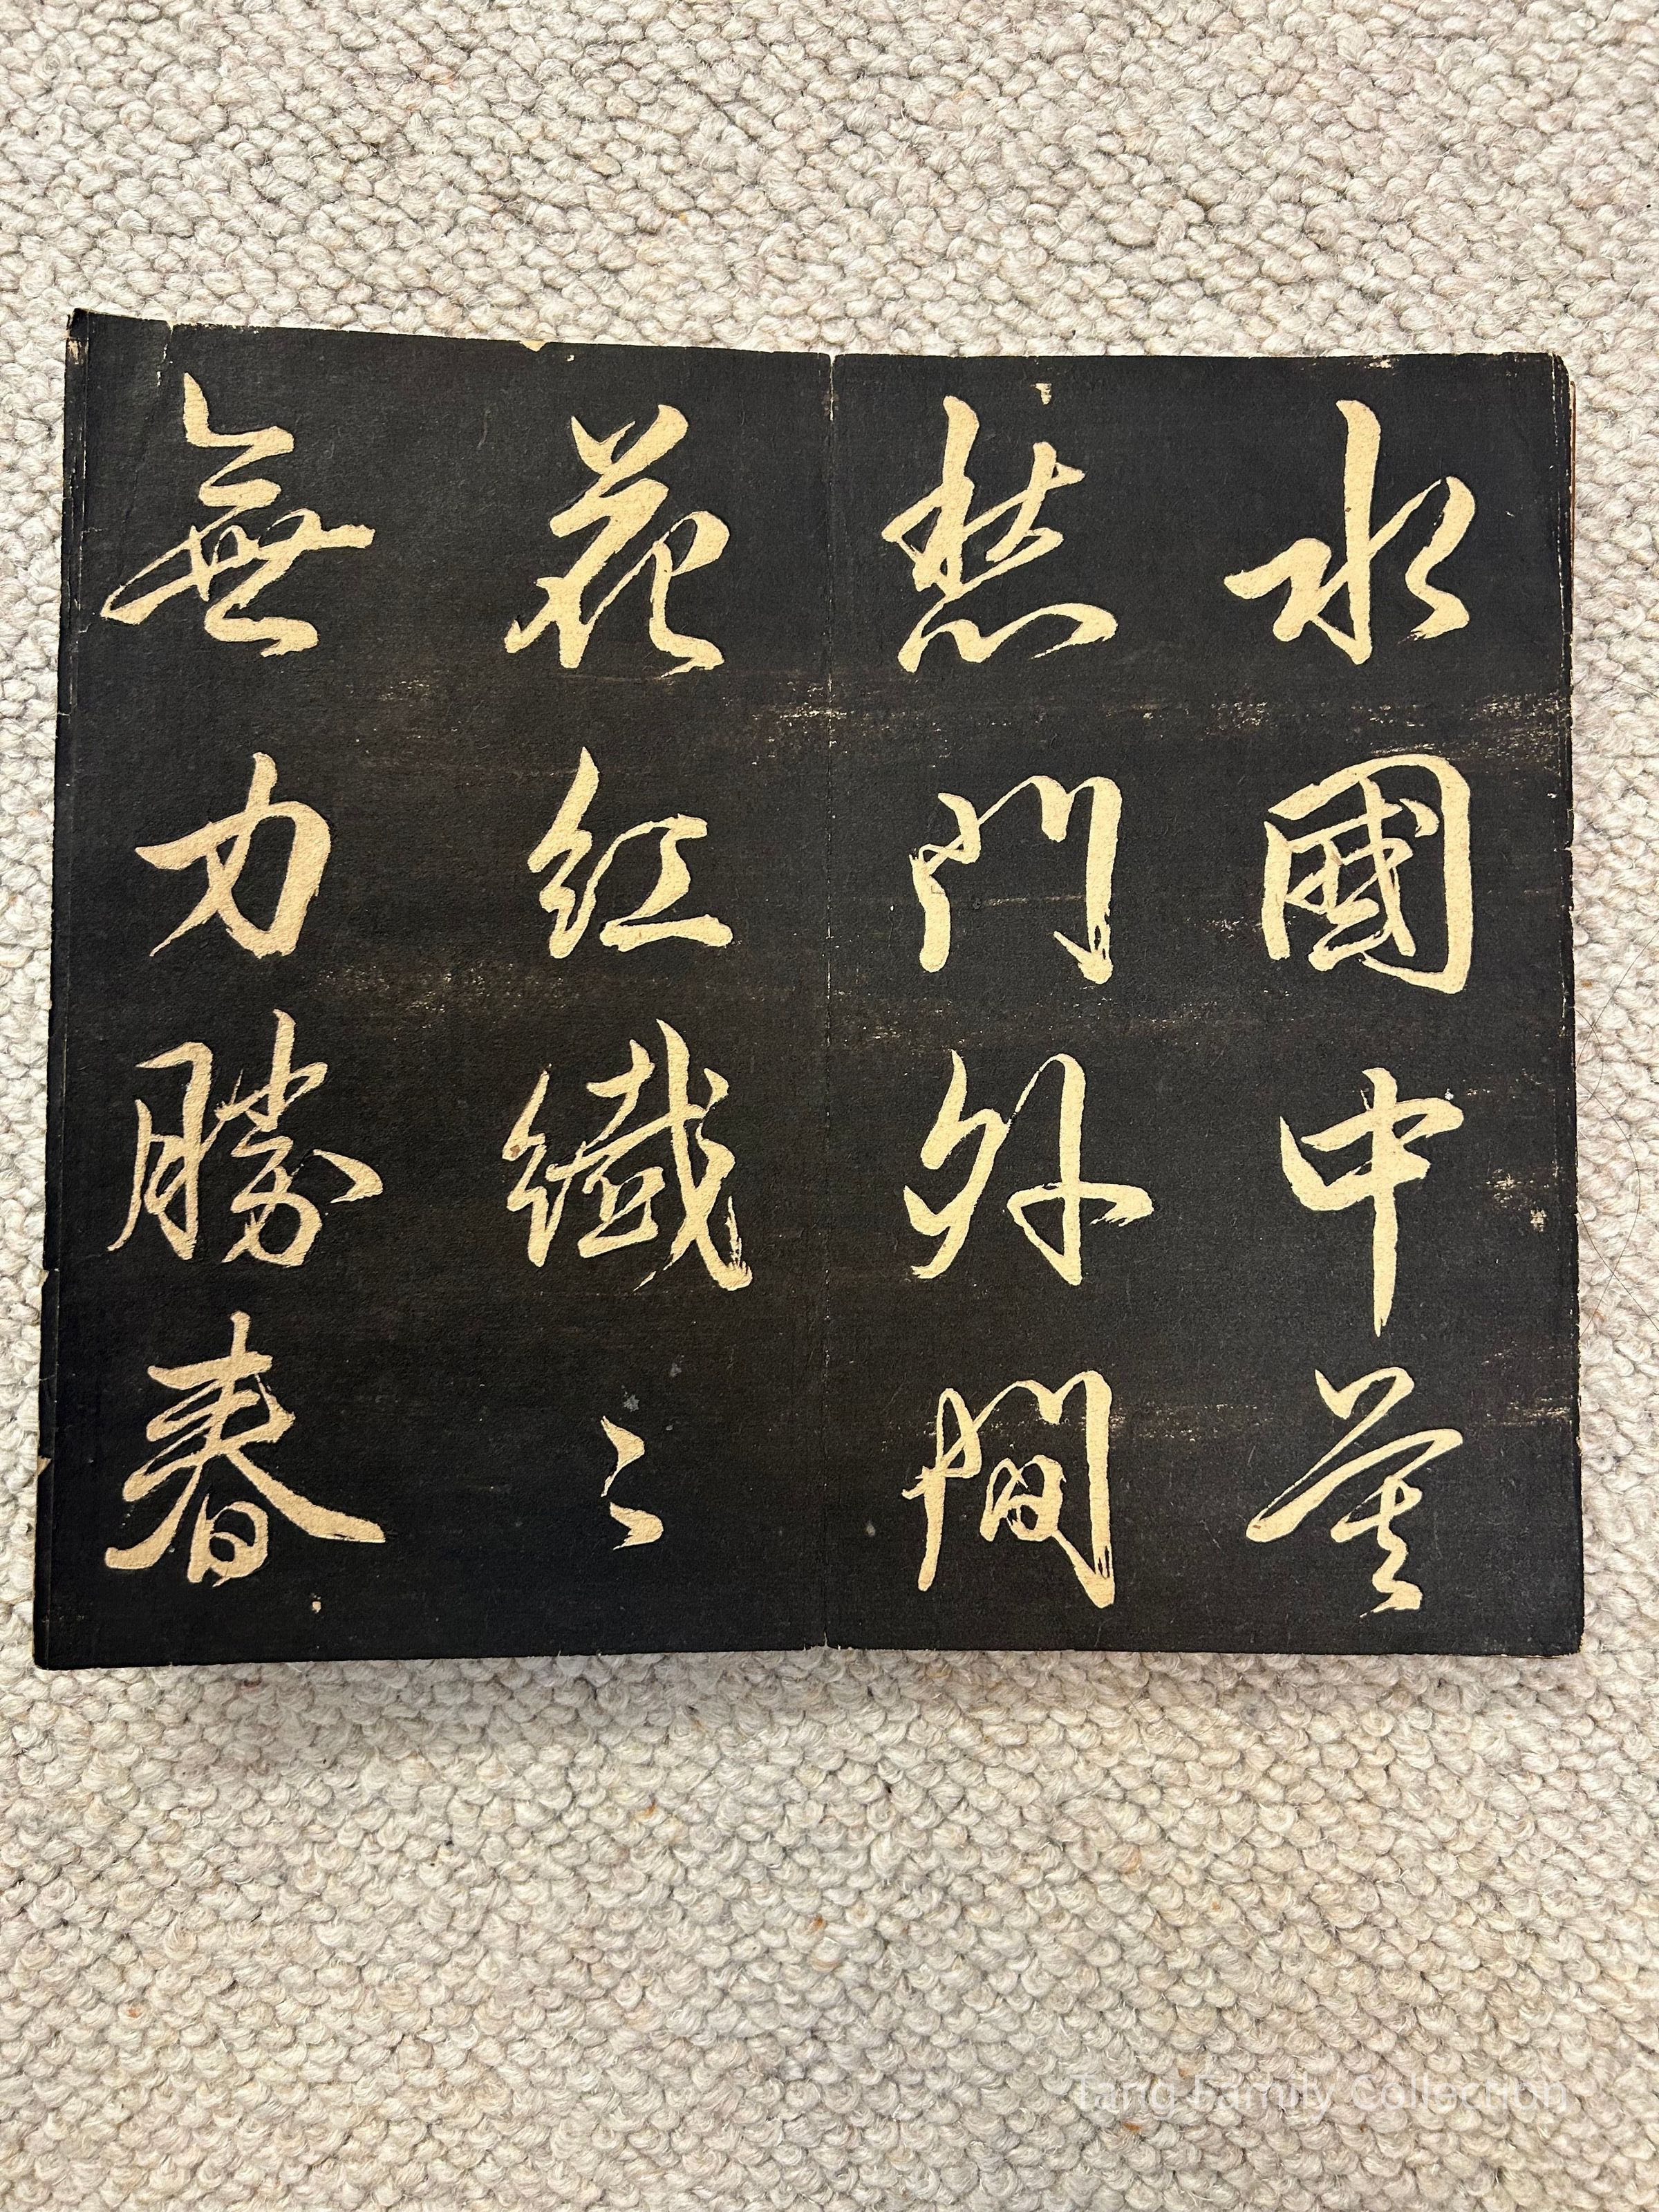 水國中莫
愁門外間
花紅纖〻
無力勝春
Tang Family Collection